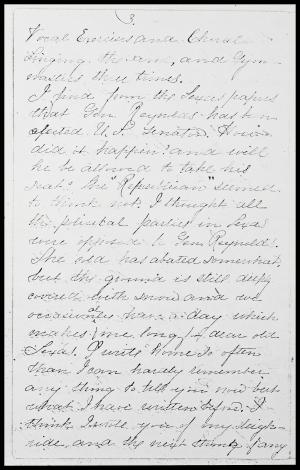 3.
Vocal Exercises and Choral
Singing the same, and Gym-
nastics three times.
I find from the Texas papers
that Gen Reynolds has been
elected U.S. Senator. How
did it happen? and will
he be allowed to take his
seat? the "Republican" seemed
to think not. I thought all
the principal parties in Texas
were opposed to Gen Reynolds.
The cold has abated somewhat,
but the ground is still deeply
covered with snow and we
occasionally have a day which
makes me long for dear old
Texas. I write home so often
than I can hardly remember
any thing to tell you now but
what I have written before. I
think I wrote you of my sleigh-
ride, and the next thing of any